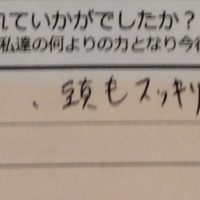 れていかがでしたか?
私達の何よりの力となり今後
、頭もスッキリ